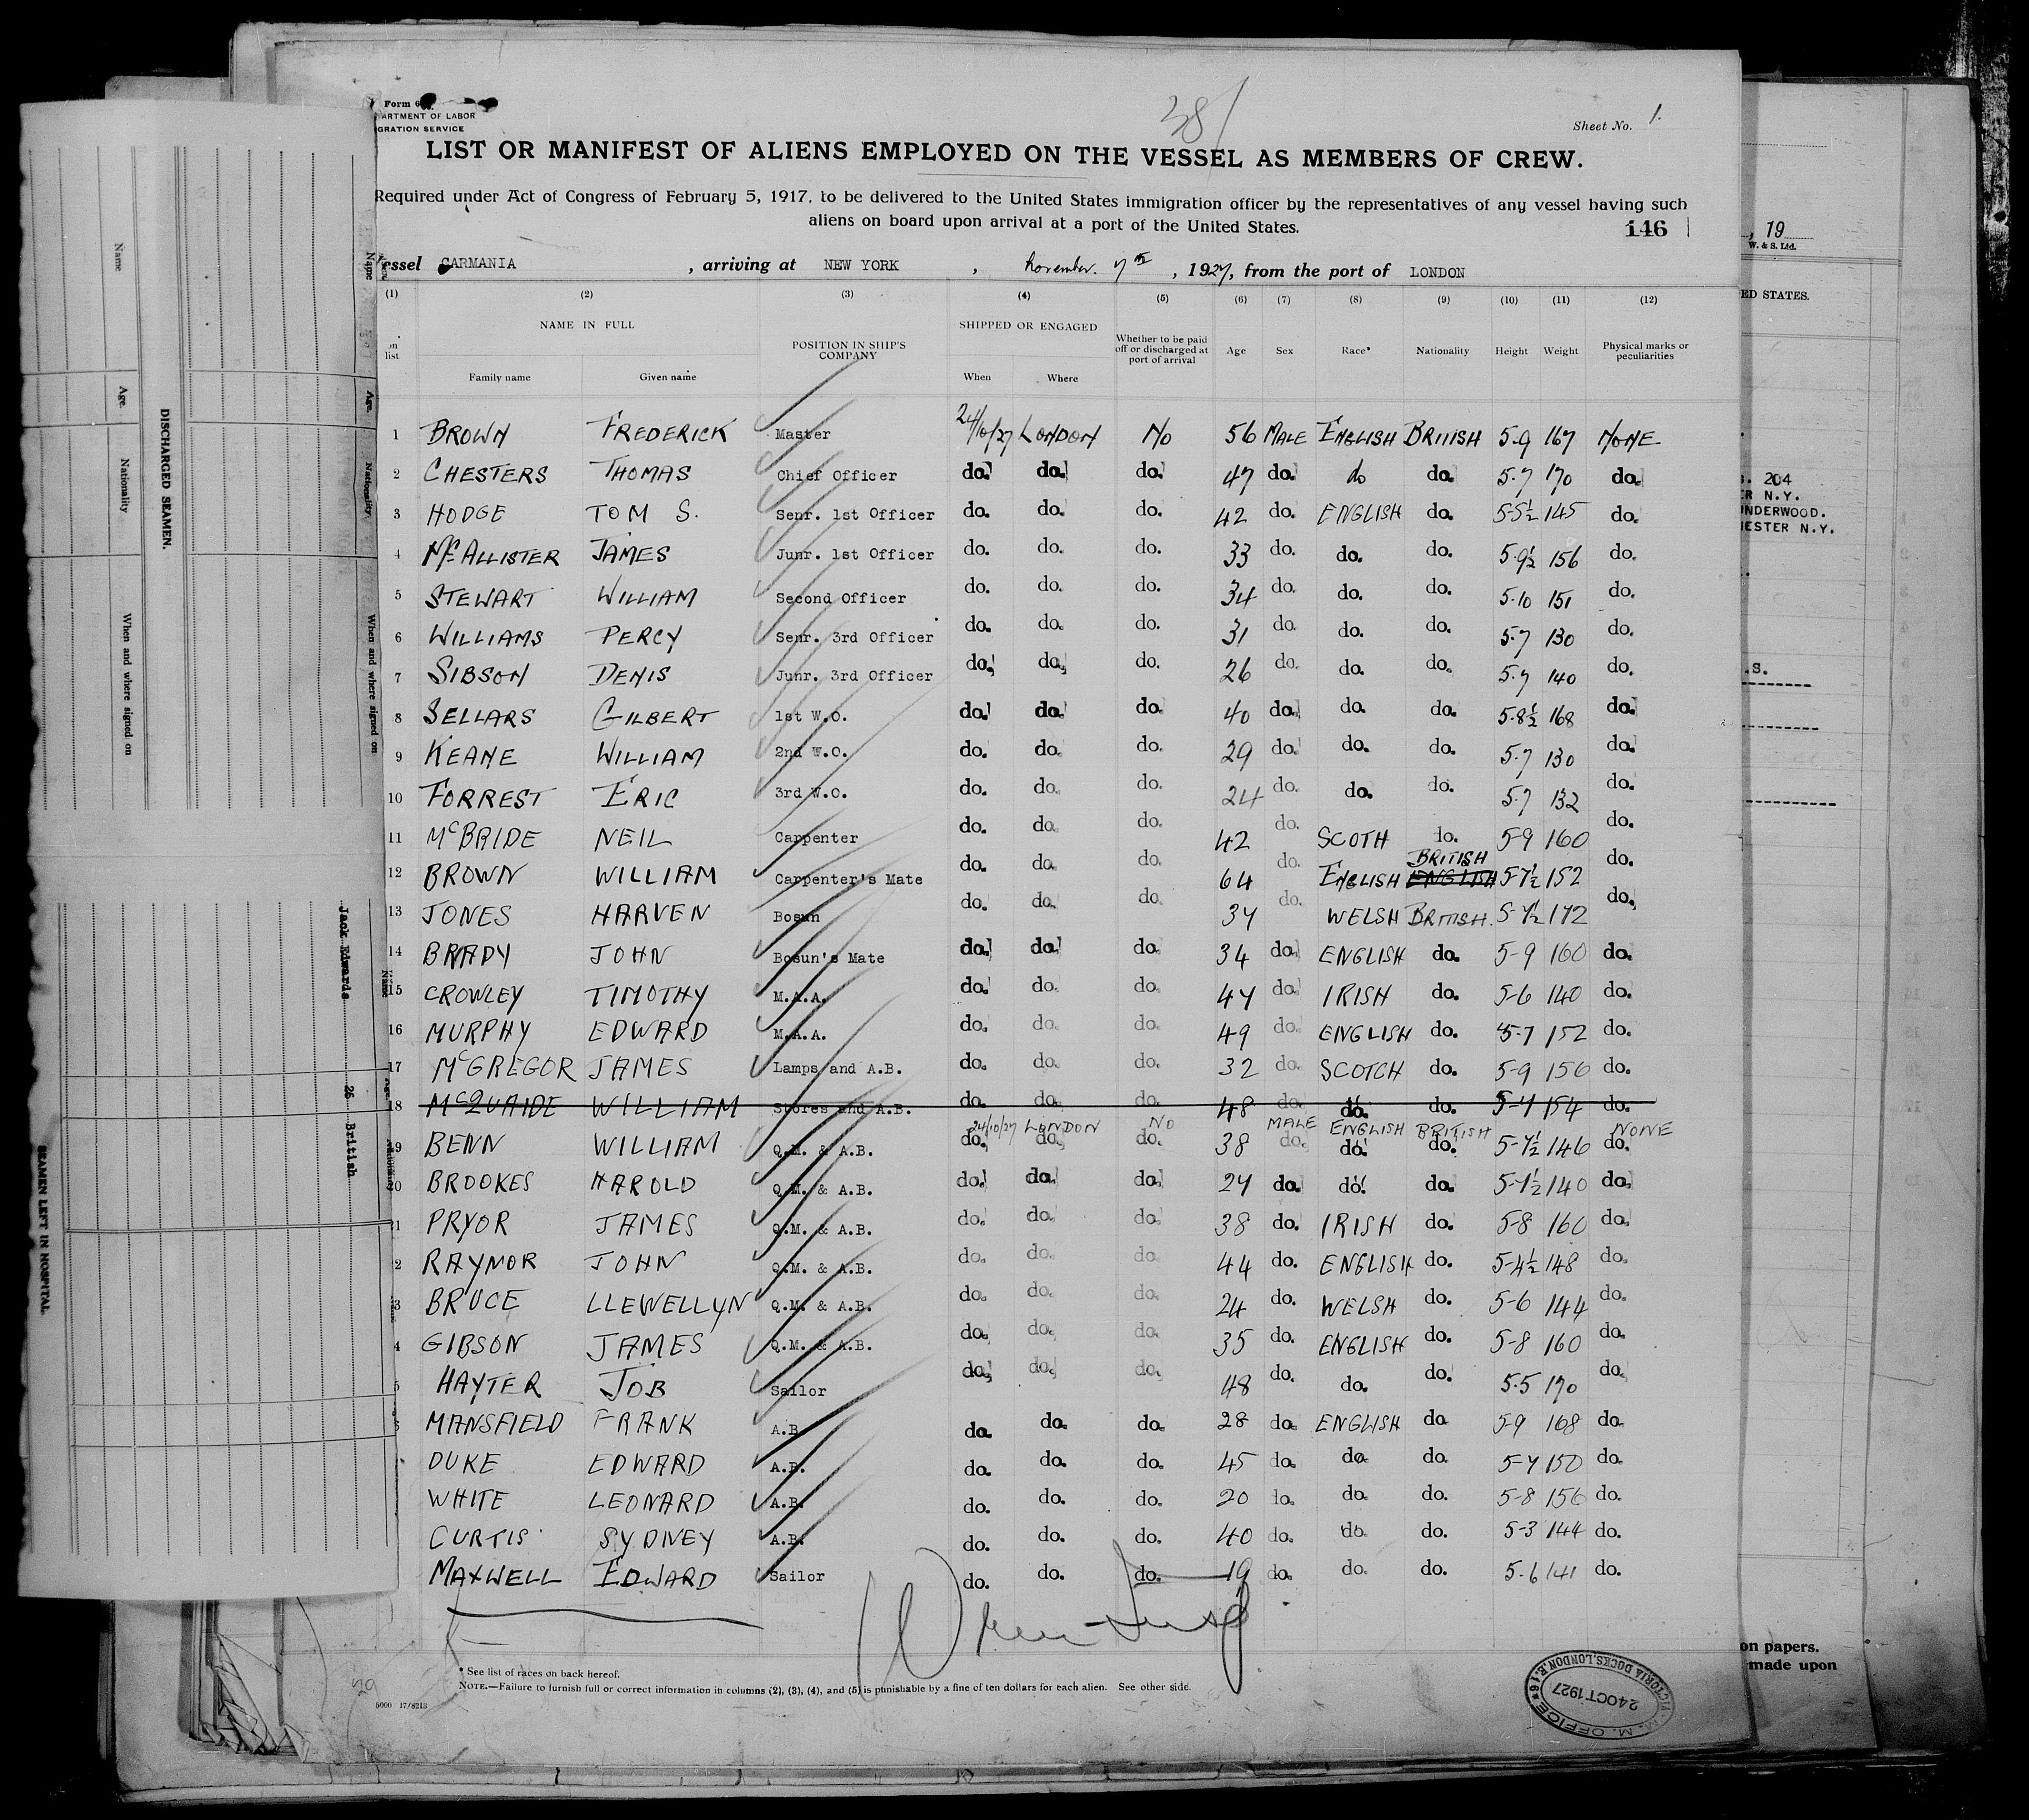 38/
Form 6
ARTMENT OF LABOR
GRATION SERVICE
Sheet No. 1.
LIST OR MANIFEST OF ALIENS EMPLOYED ON THE VESSEL AS MEMBERS OF CREW.
Required under Act of Congress of February 5, 1917, to be delivered to the United States immigration officer by the representatives of any vessel having such
aliens on board upon arrival at a port of the United States.
146
essel CARMANIA , arriving at NEW YORK , November. 7th , 1927, from the port of LONDON
(1) (2) (3) (4) (5) (6) (7) (8) (9) (10) (11) (12)
on list
NAME IN FULL
Family name Given name
POSITION IN SHIP'S COMPANY
SHIPPED OR ENGAGED
When Where
Whether to be paid off or discharged at port of arrival
Age Sex Race* Nationality Height Weight
Physical marks or peculiarities
1 BROWN FREDERICK Master 24/10/27 LONDON NO 56 MALE ENGLISH BRITISH 5-9 167 NONE
2 CHESTERS THOMAS Chief Officer do. do. do. 47 do. do do. 5.7 170 do.
3 HODGE TOM S. Senr. 1st Officer do. do. do. 42 do. ENGLISH do. 5-5½ 145 do.
4 McALLISTER JAMES Junr. 1st Officer do. do. do. 33 do. do. do. 5.9½ 156 do.
5 STEWART WILLIAM Second Officer do. do. do. 34 do. do. do. 5.10 151 do.
6 WILLIAMS PERCY Senr. 3rd Officer do. do. do. 31 do. do. do. 5.7 130 do.
7 SIBSON DENIS Junr. 3rd Officer do. do. do. 26 do. do. do. 5.7 140 do.
8 SELLARS GILBERT 1st W.O. do. do. do. 40 do. do. do. 5.8½ 168 do.
9 KEANE WILLIAM 2nd W.O. do. do. do. 29 do. do. do. 5.7 130 do.
10 FORREST ERIC 3rd W.O. do. do. do. 24 do. do. do. 5.7 132 do.
11 McBRIDE NEIL Carpenter do. do. do. 42 do. SCOTH do. 5-9 160 do.
12 BROWN WILLIAM Carpenter's Mate do. do. do. 64 do. ENGLISH BRITISH ENGLISH 5-7½ 152 do.
13 JONES HARVEN Bosun do. do. do. 37 do. WELSH BRITISH. 5-7½ 172 do.
14 BRADY JOHN Bosun's Mate do. do. do. 34 do. ENGLISH do. 5-9 160 do.
15 CROWLEY TIMOTHY M.A.A. do. do. do. 47 do. IRISH do. 5-6 140 do.
16 MURPHY EDWARD M.A.A. do. do. do. 49 do. ENGLISH do. 5-7 152 do.
17 McGREGOR JAMES Lamps and A.B. do. do. do. 32 do. SCOTCH do. 5-9 156 do.
18 McQUAIDE WILLIAM Stores and A.B. do. do. do. 48 do. do. do. 5-7 154 do.
24/10/27 LONDON NO MALE ENGLISH BRITISH NONE
19 BENN WILLIAM Q.M. & A.B. do. do. do. 38 do. do. do. 5-7½ 146 do.
20 BROOKES HAROLD Q.M. & A.B. do. do. do. 27 do. do. do. 5-7½ 140 do.
21 PRYOR JAMES Q.M. & A.B. do. do. do. 38 do. IRISH do. 5-8 160 do.
2 RAYNOR JOHN Q.M. & A.B. do. do. do. 44 do. ENGLISH do. 5-4½ 148 do.
3 BRUCE LLEWELLYN Q.M. & A.B. do. do. do. 24 do. WELSH do. 5-6 144 do.
4 GIBSON JAMES Q.M. & A.B. do. do. do. 35 do. ENGLISH do. 5-8 160 do.
5 HAYTER JOB Sailor do. do. do. 48 do. do. do. 5.5 170 do.
MANSFIELD FRANK A.B. do. do. do. 28 do. ENGLISH do 5-9 168 do.
DUKE EDWARD A.B. do. do. do. 45 do. do. do. 5-7 150 do.
WHITE LEONARD A.B. do. do. do. 20 do. do. do. 5-8 156 do.
CURTIS SYDNEY A.B. do. do. do. 40 do. do. do. 5-3 144 do.
MAXWELL EDWARD Sailor do. do. do. 19 do. do. do. 5.6 141 do.
* See list of races on back hereof.
NOTE.—Failure to furnish full or correct information in columns (2), (3), (4), and (5) is punishable by a fine of ten dollars for each alien. See other side.
5000 17/8213
M. M. OFFICE
24 OCT 1927
VICTORIA DOCKS, LONDON E.16
DISCHARGED SEAMEN.
Name Age. Nationality When and where signed on
Name Age. Nationality When and where signed on
SEAMEN LEFT IN HOSPITAL
Jack Edwards 26 British
, 19
W. & S. Ltd.
ED STATES.
204
R N.Y.
UNDERWOOD.
HESTER N.Y.
.S.
on papers.
made upon